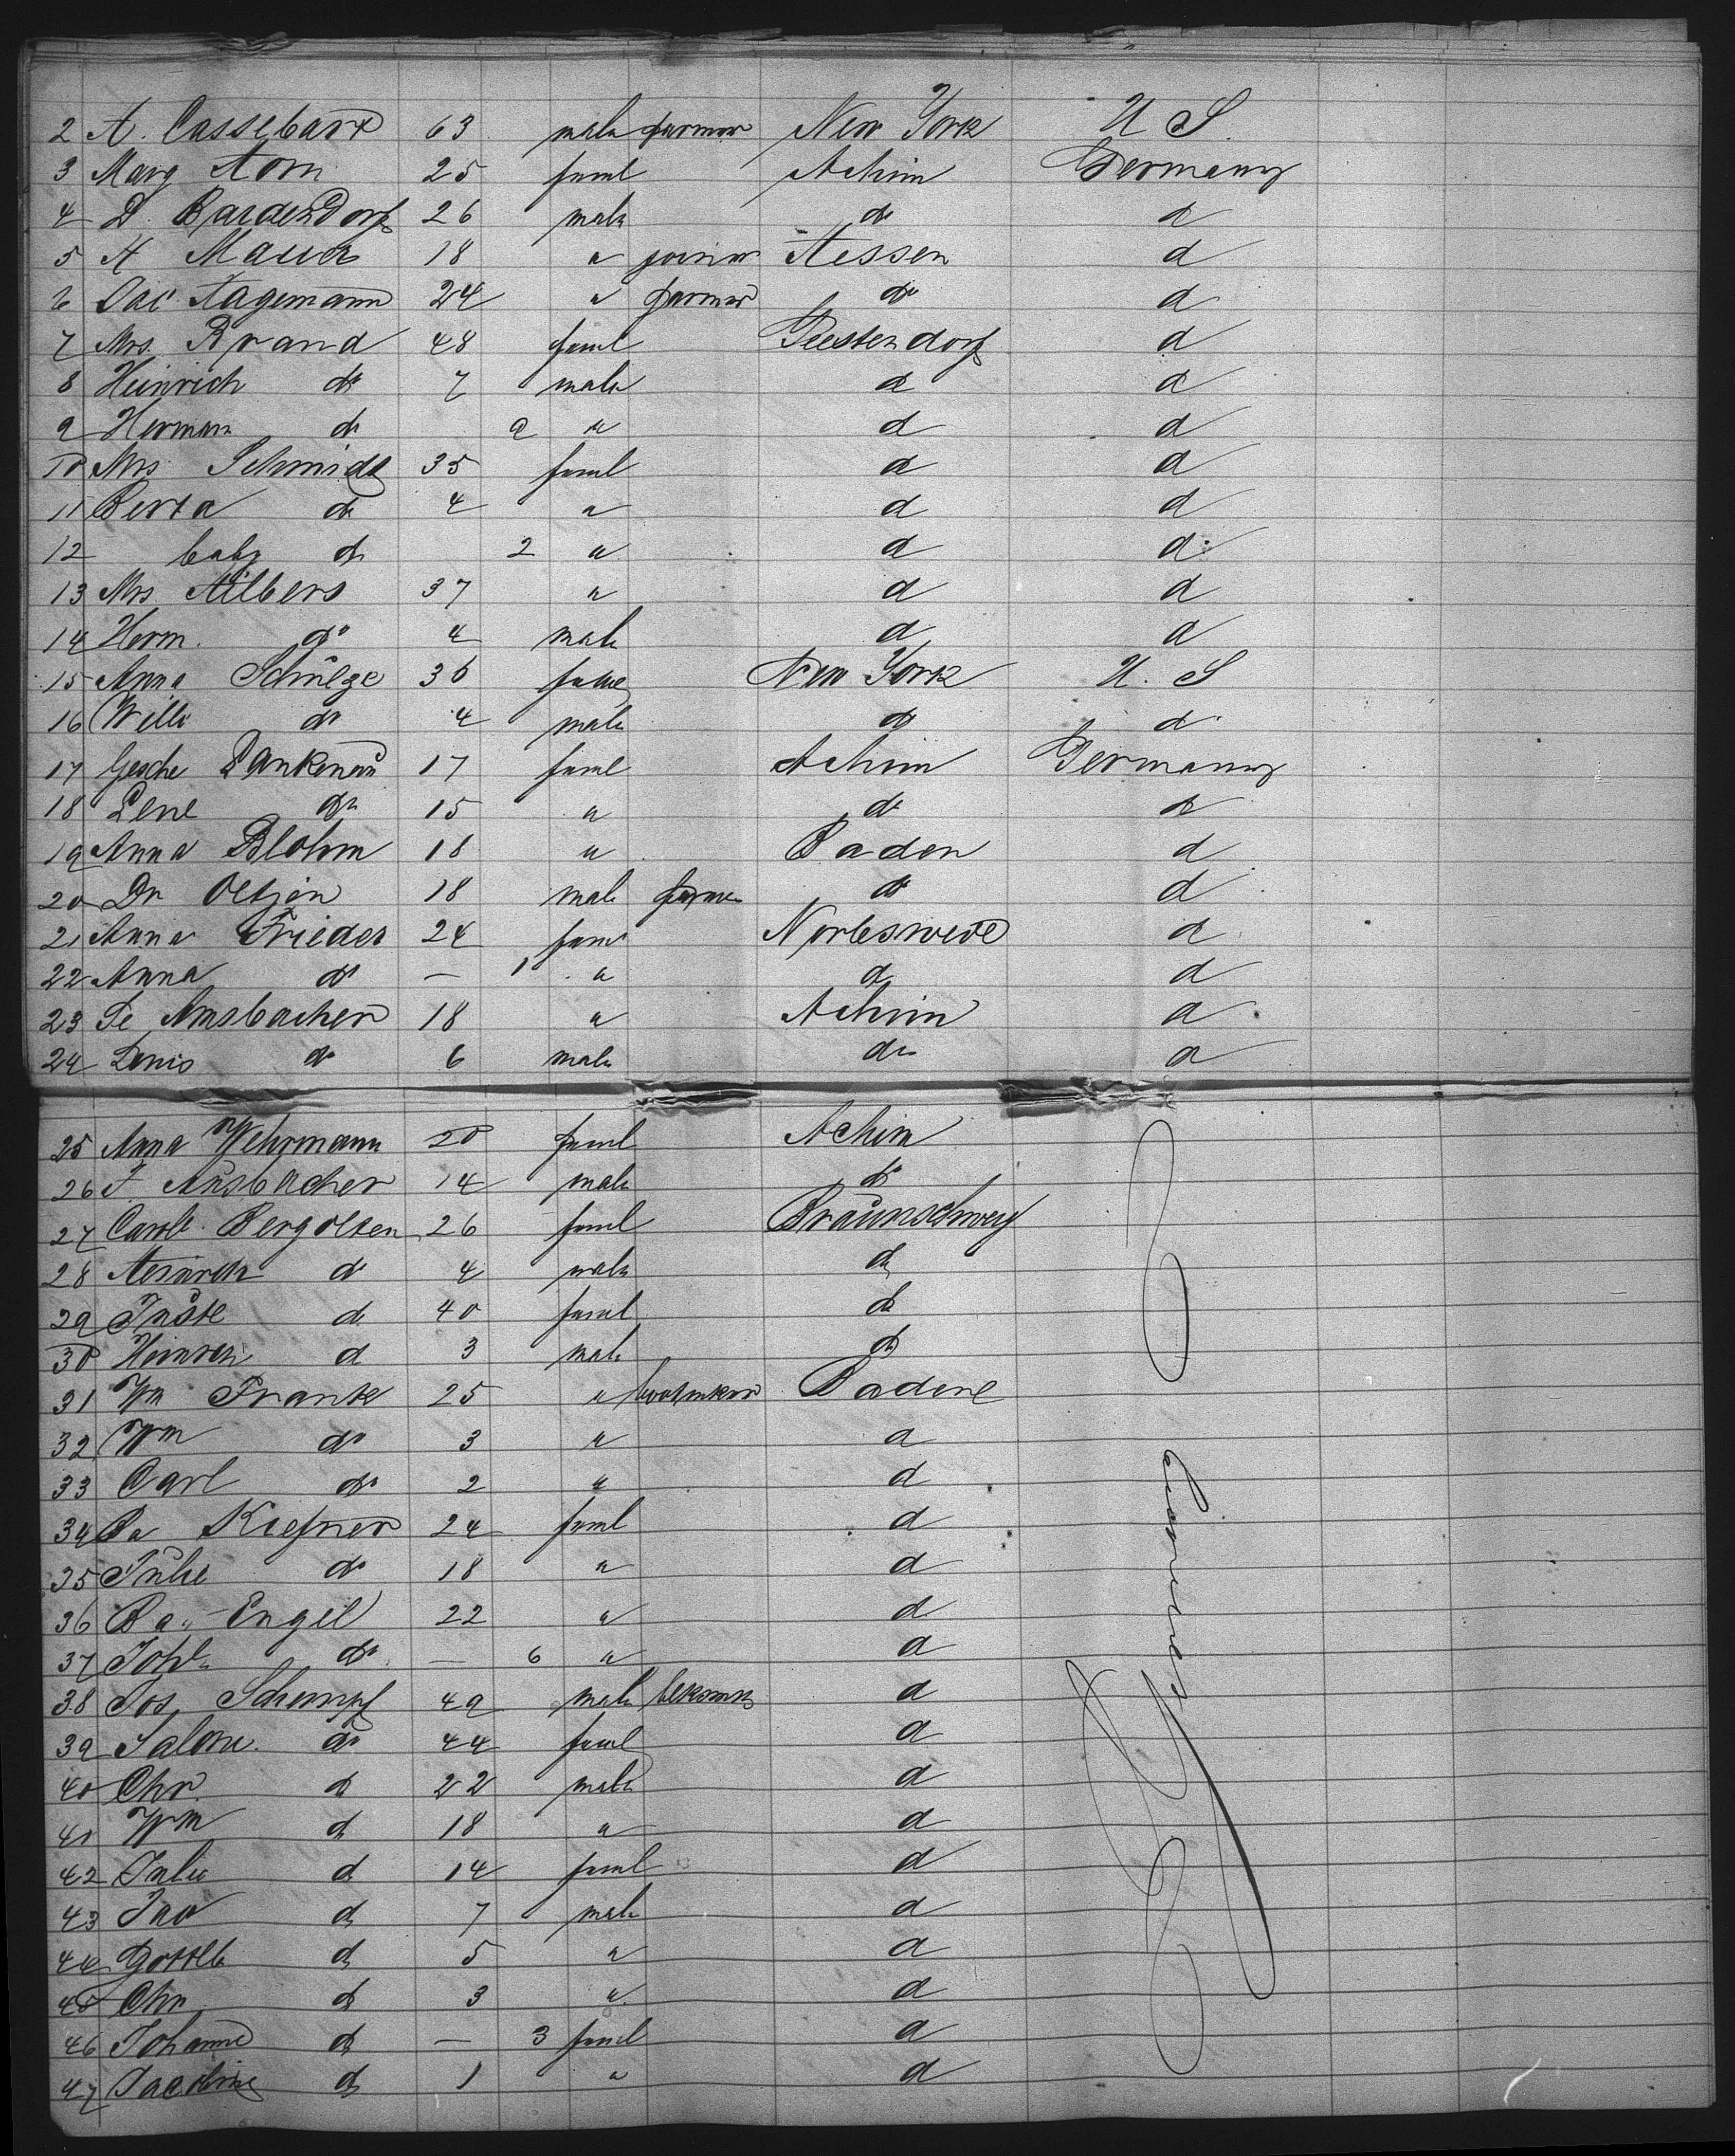 2 A. Cassebart 63 male farmer New York U S.
3 Marg Horn 25 feml Achim Germany
4 D. Bardendorf 26 male do d
5 H Mauer 18 " joiner Hessen d
6 Jac Hagemann 24 " farmer do d
7 Mrs. Brand 48 feml Geestendorf d
8 Heinrich do 7 male d d
9 Herman do 9 " d d
10 Mrs Schmidt 35 feml d d
11 Berta do 4 " d d
12 baby do 2 " d d
13 Mrs Hilbers 37 " d d
14 Herm. do 4 male d d
15 Anna Schülge 36 New York U. S
16 Willi do 4 male do d
17 Gesche Dankenau 17 feml Achim Germany
18 Lene do 15 " do d
19 Anna Blohm 18 " Baden d
20 Dr Oetjen 18 male farmer do d
21 Anna Frieder 24 feml d
22 Anna do — 1 " d d
23 Se Ansbacher 18 " Achim d
24 do 6 male do d
25 Anna Wehrmann 20 feml Achim
26 F. Ansbacher 14 male do
27 Carol. Bergolten 26 feml Braunschweig
28 Heinrich d 4 male do
29 d 40 feml do
30 d 3 male do
31 Wm Frank 25 " Badene
32 Wm do 3 " d
33 Carl do 2 " d
34 Ba Kiefner 24 feml d
35 Julie do 18 " d
36 Ba. Engel 22 " d
37 Joh. do — 6 " d
38 Jos, Schempf 49 male d
39 Salome do 44 feml d
40 Chr. d 22 male d
41 Wm d 18 " d
42 Julie d 14 feml d
43 d 7 male d
44 Gottlb d 5 " d
45 Chr d 3 " d
46 Johanne d — 3 feml d
47 Jacobine d 1 " d